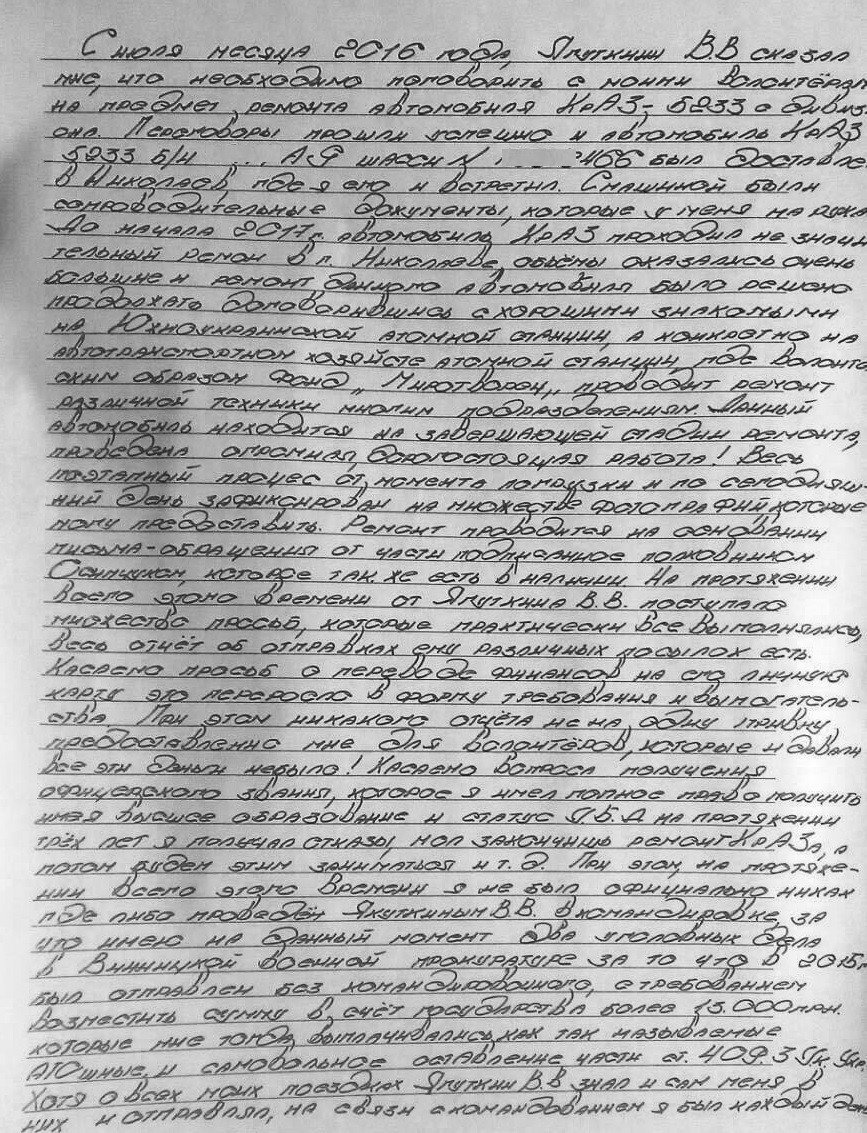 С июля месяца 2016 года, Якуткин В.В сказал
мне, что необходимо поговорить с моими Волонтёрам
на предмет ремонта автомобиля КрАЗ-5233 с дивиз
она. Переговоры прошли успешно и автомобиль КрАЗ
5233 Б/Н ... А.Я шасси N 466 был доставле
в Николаев, где я его и встретил. Смашиной были
сопроводительные документы, которые у меня на рука
До начала 2017г. автомобиль КрАЗ проходил не значи
тельный ремон в г. Николаеве, объёмы оказались очень
большие и ремонт данного автомобиля было решено
продолжать договорившись с хорошими знакомыми
на Южноукраинской атомной станции, а конкретно на
автотранспортном хозяйсте атомной станции, где волонтё
ским образом Фонд "Миротворец" проводит ремонт
различной техники многим подразделениям. Данный
автомобиль находится на завершающей стадии ремонта,
проведена огромная, дорогостоящая работа! Весь
поэтапный процес от момента погрузки и по сегодняш-
ний день зафиксирован на множестве фотографий которые
могу предоставить. Ремонт проводится на основании
письма-обращения от части подписанное полковником
Осипчуком, которое так же есть в наличии. На протяжении
всего этого времени от Якуткина В.В. поступало
множество просьб, которые практически все выполнялись,
Весь отчёт об отправках ему различных посылок есть.
Касаемо просьб о переводе финансов на его личную
карту это переросло в форму требования и вымогатель-
ства. При этом никакого отчёта не на одну гривну
предоставленно мне для волонтёров, которые и давали
все эти деньги небыло! Касаемо вопроса получения
офицерского звания, которое я имел полное право получить
имея высшее образование и статус У.Б.Д на протяжении
трёх лет я получал отказы, мол закончишь ремонт КрАЗа, а
потом будем этим заниматься и т.д. При этом, на протяже-
нии всего этого времени я не был официально никак
где либо проведён Якуткиным В.В. в командировке, за
что имею на данный момент два уголовных дела
в Винницкой военной прокуратуре за то что в 2015г
был отправлен без командировочного, с требованием
возместить сумму в счёт государства более 15.000 грн.
которые мне тогда выплачивались как так называемые
АТОшные, и самовольное оставление части ст. 409.3 УК Укр.
Хотя о всех моих поездках Якуткин В.В знал и сам меня в
них и отправлял, на связи скомандованием я был каждый день